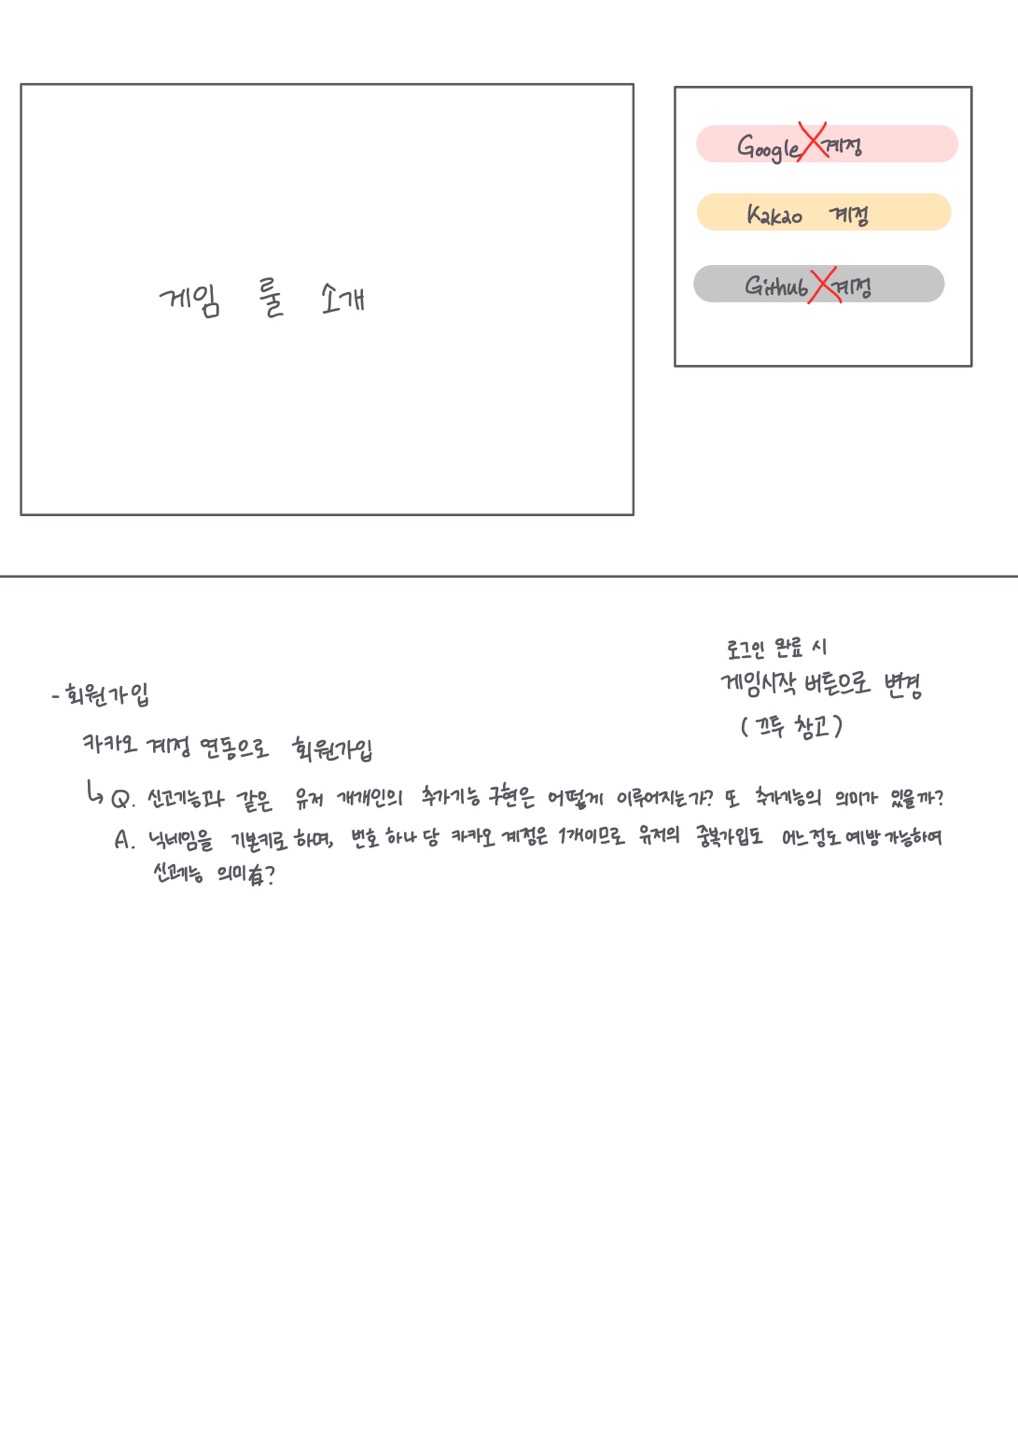 Google 계정
Kakao 계정
Github 계정
게임 룰 소개
로그인 완료 시
게임시작 버튼으로 변경
(끄투 참고)
- 회원가입
카카오 계정 연동으로 회원가입
↳ Q. 신고기능과 같은 유저 개개인의 추가기능 구현은 어떻게 이루어지는가? 또 추가기능의 의미가 있을까?
A. 닉네임을 기본키로 하며, 번호 하나 당 카카오 계정은 1개이므로 유저의 중복가입도 어느정도 예방 가능하여
신고기능 의미有?